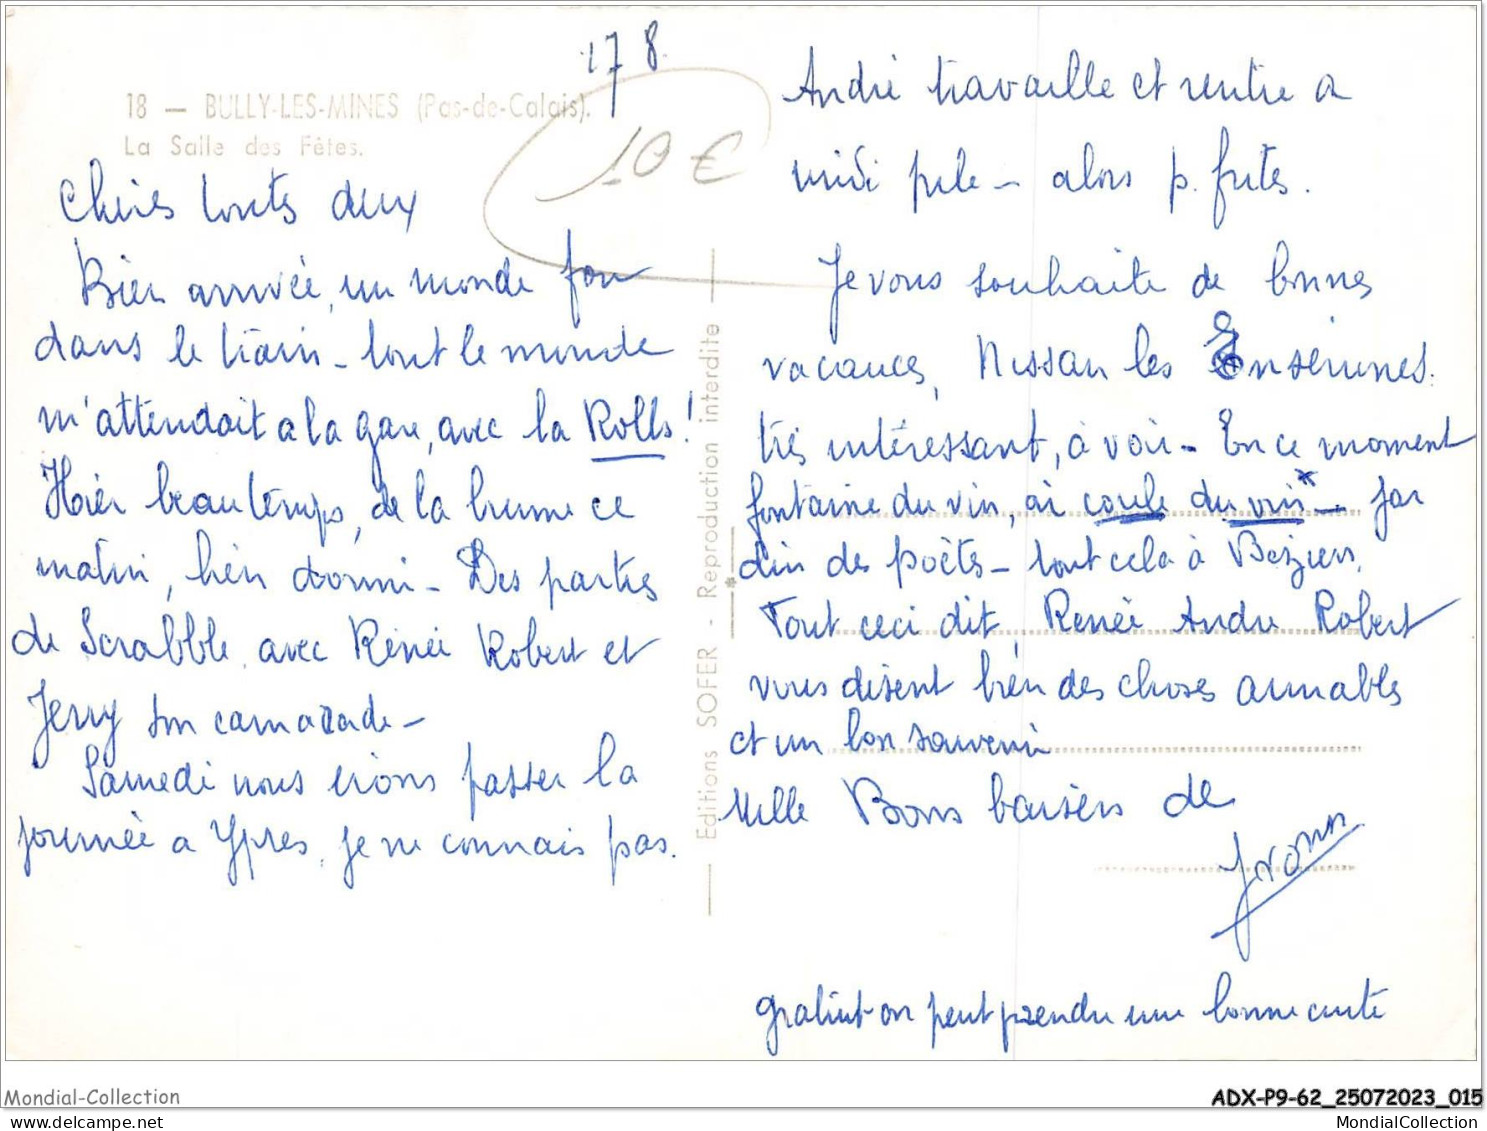 178
18 — BULLY-LES-MINES (Pas-de-Calais).
La Salle des Fêtes.
10 €
Chères toutes deux
Bien arrivée, un monde fou
dans le train - tout le monde
m'attendait a la gare, avec la Rolls !
Hier beau temps, de la brume ce
matin, bien dormi - Des parties
de Scrabble avec Rénée Robert et
Jerry son camarade -
Samedi nous irons passer la
journée a Ypres, je ne connais pas.
Editions SOFER - Reproduction interdite
André travaille et rentre a
midi pile - alors p. frites.
Je vous souhaite de bonnes
vacances, Nissan les Ensérunes.
très intéressant, à voir - En ce moment
fontaine du vin, où coule du vin* - Jar
din des poètes - tout cela à Béziers.
Tout ceci dit, Renée André Robert
vous disent bien des choses aimables
et un bon souvenir
Mille Bons baisers de
gratuit - on peut prendre une bonne cuite
Mondial-Collection
ADX-P9-62_25072023_015
MondialCollection